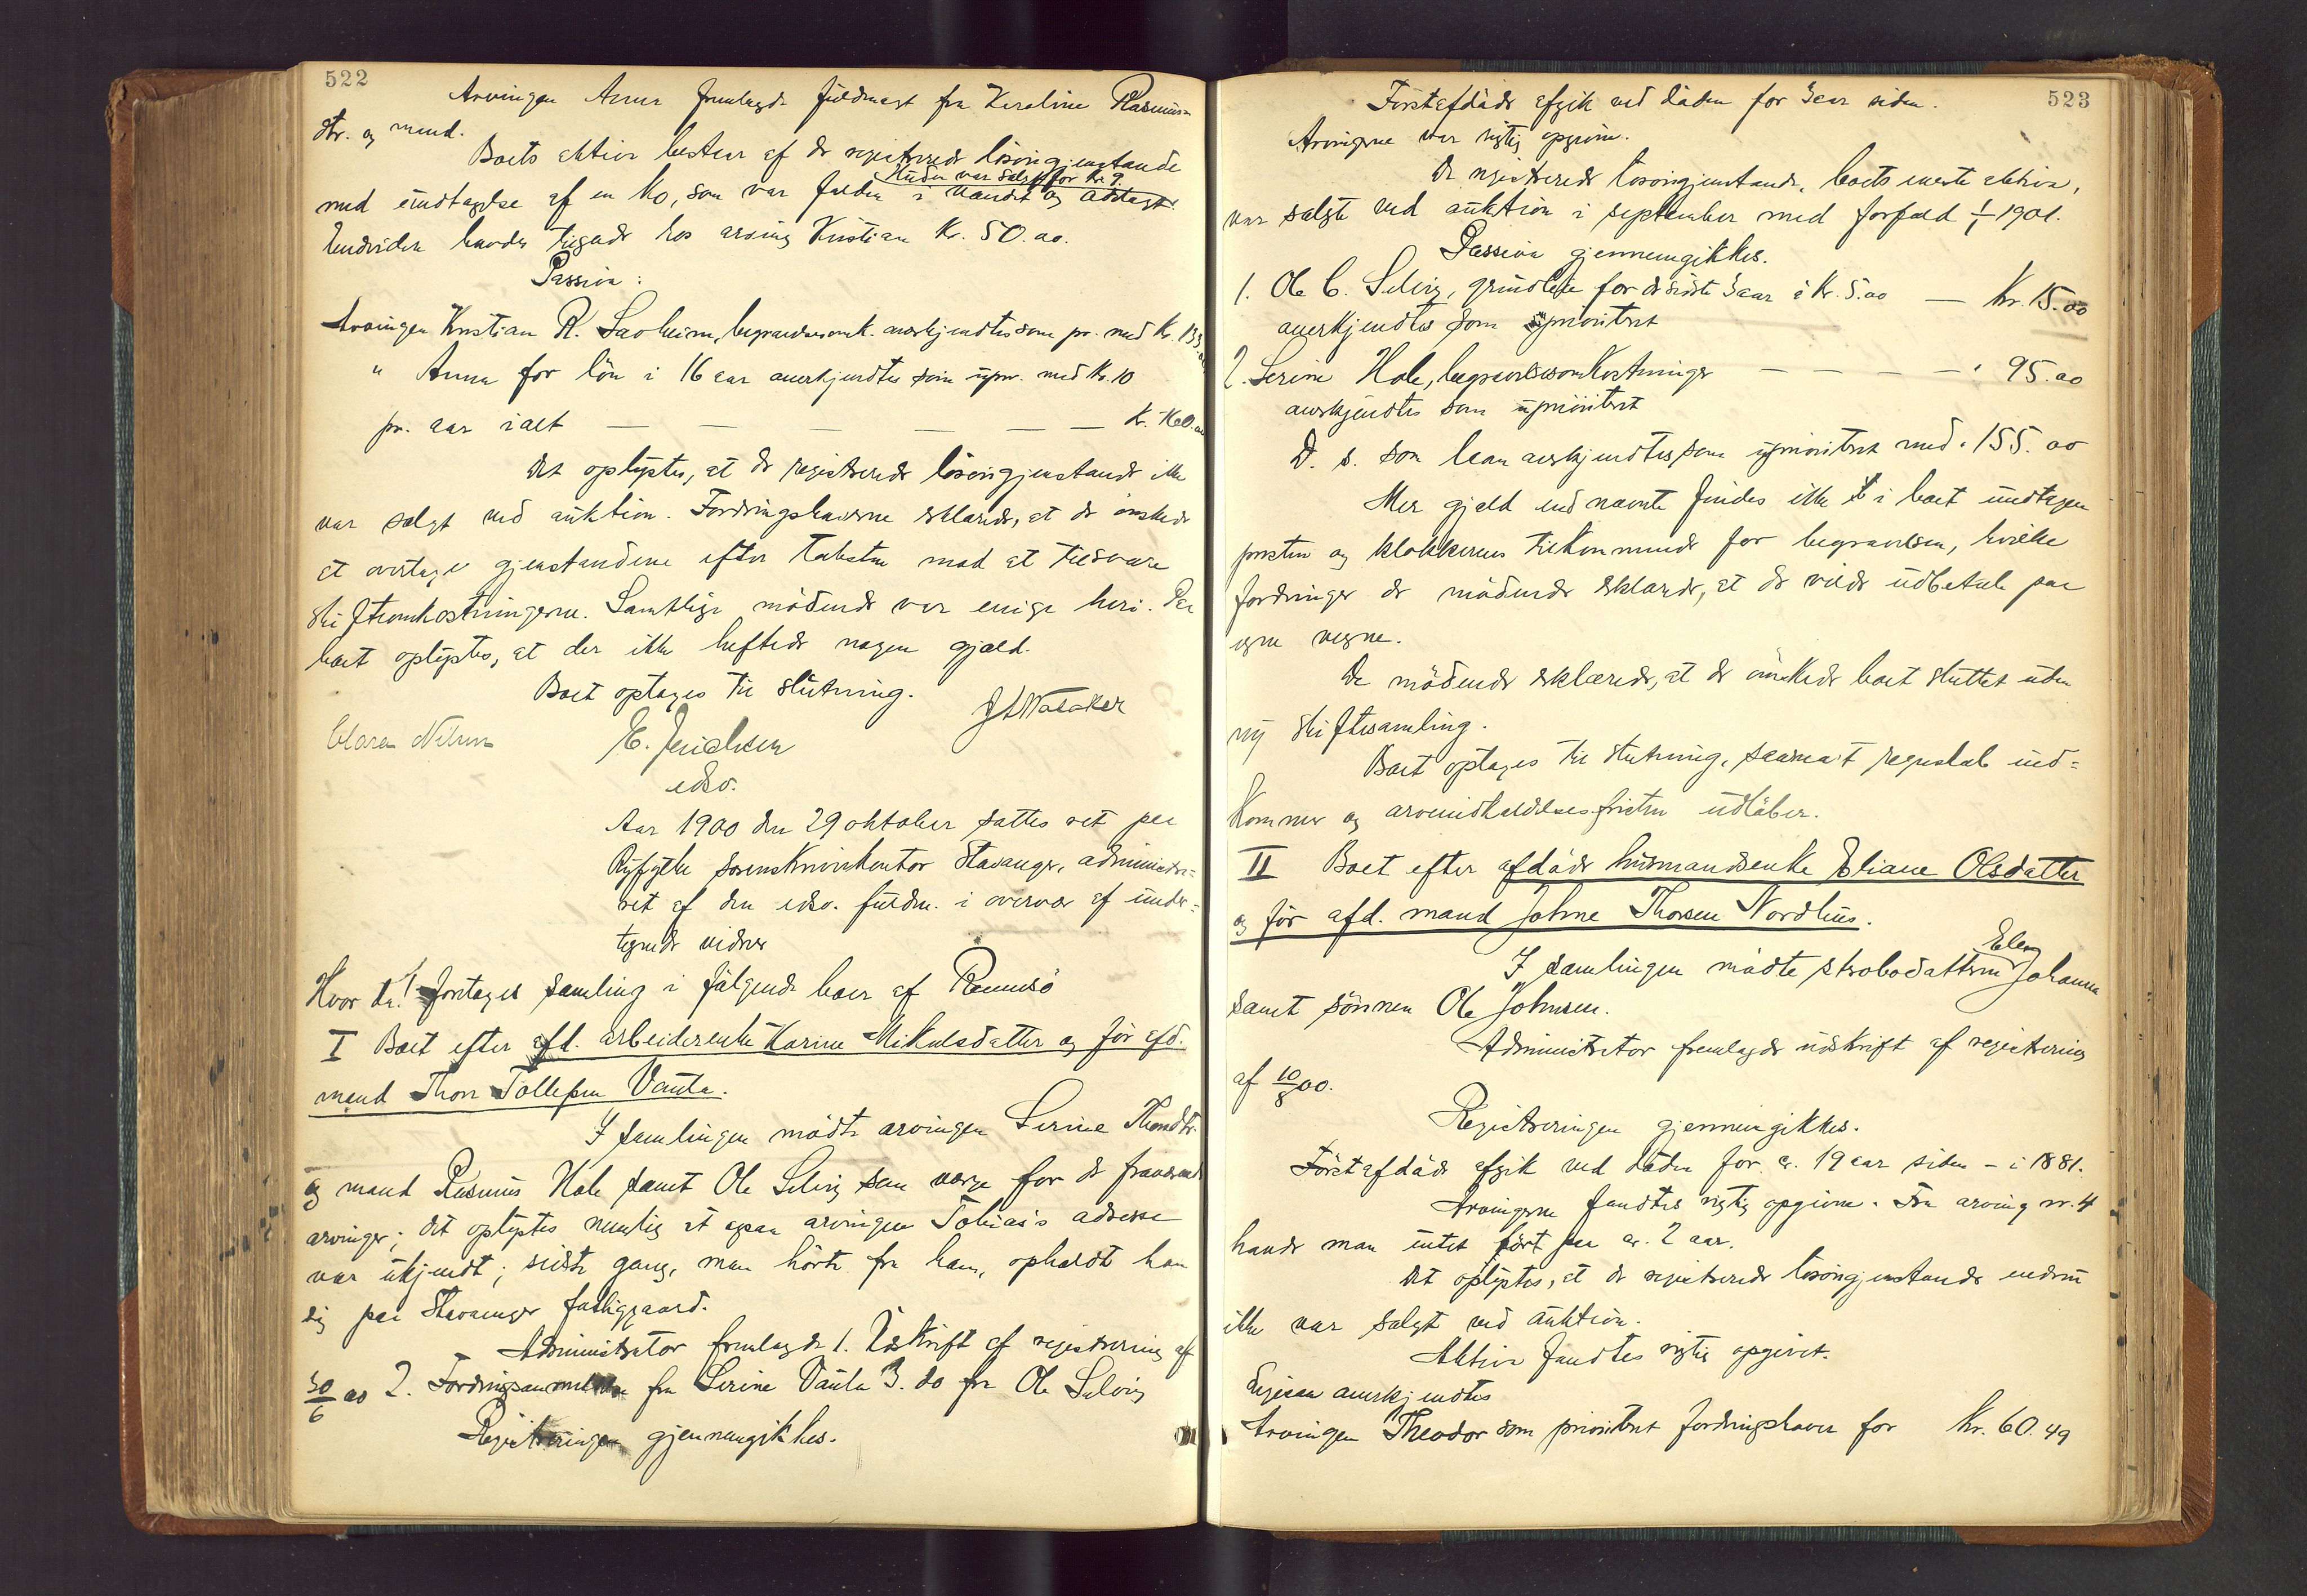 522
Arvingen Anna fremlagde fuldmagt fra Karoline Rasmus-
dtr. og mand.
Boets aktiva bestaar af de registrerede løsøregjenstande
Huden var solgt for kr. 9.
med undtagelse af en ko, som var falden i vandet og ødelagt.
Endvidere havdes tilgode hos arving Kristian kr. 50.00.
Passiva:
Arvingen Kristian R. anerkjendtes som pr. med kr.
" Anna for løn i 16 aar anerkjendtes som upr. med kr. 10
pr. aar ialt — — — — — — kr. 160.00
Det oplystes, at de registrerede løsøregjenstande ikke
var solgt ved auktion. Fordringshaverne erklærede, at de ønskede
at overtage gjenstandene efter taksten mod at tilsvare
skifteomkostningerne. Samtlige mødende var enige heri. Paa
boet oplystes, at der ikke heftede nogen gjæld.
Boet optages til slutning.
edsv.
Aar 1900 den 29 oktober sattes ret paa
Ryfylke sorenskriverkontor Stavanger, administre-
ret af den edsv. fuldm. i overvær af under-
tegnede vidner
Hvor da foretages samling i følgende boer af Rennesø
I Boet efter afd. arbeiderenke Karine Mikalsdatter og før afd.
mand Thore Tollefsen Vaula.
I samlingen mødte arvingen Serine Thoresdtr.
og mand Rasmus Hole samt Ole Selvig som værge for de fraværende
arvinger; det oplystes nemlig at arvingen Tobias's adresse
var ukjendt; sidste gang, man hørte fra ham, opholdt han
sig paa Stavanger fattiggaard.
Administrator fremlagde 1. Udskrift af registrering af
30/6 00 2. Fordringsanmeldelse fra Serine Vaula 3. do fra Ole Selvig
Registreringen gjennemgikkes.
523
Førstafdøde afgik ved døden for 3 aar siden.
Arvingerne var rigtig opgivne.
De registrerede løsøregjenstande, boets eneste aktiva,
var solgte ved auktion i september med forfald 1901.
Passiva gjennemgikkes.
1. Ole C. Selvig, grundleie for de sidste 3 aar à kr. 5.00 — kr. 15.00
anerkjendtes som uprioritert
2. Serine Hole, begravelsesomkostninger — — — — " 95.00
anerkjendtes som uprioritert
D. s. som laan anerkjendtes som uprioritert med " 155.00
Mer gjæld end nævnte findes ikke i boet undtagen
prestens og klokkerens tilkommende for begravelsen, hvilke
fordringer de mødende erklærede, at de vilde udbetale paa
egne vegne.
De mødende erklærede, at de ønskede boet sluttet uden
ny skiftesamling.
Boet optages til slutning, saasnart regnskab ind-
kommer og arveindkaldelsesfristen udløber.
II Boet efter afdøde husmandsenke Eliane Olsdatter
og før afd. mand Johne Thorsen Nordhus.
I samlingen mødte Johanna
samt sønnen Ole Johnsen.
Administrator fremlagde udskrift af registrering
af 10/8 00.
Registreringen gjennemgikkes.
Førstafdøde afgik ved døden for ca. 19 aar siden - i 1881.
Arvingerne fandtes rigtig opgivne. Fra arving nr. 4
havde man intet hørt paa ca. 2 aar.
Det oplystes, at de registrerede løsøregjenstande endnu
ikke var solgt ved auktion.
Aktiva fandtes rigtig opgivet.
Ligesaa anerkjendtes
Arvingen Theodor som prioritert fordringshaver for kr. 60.49